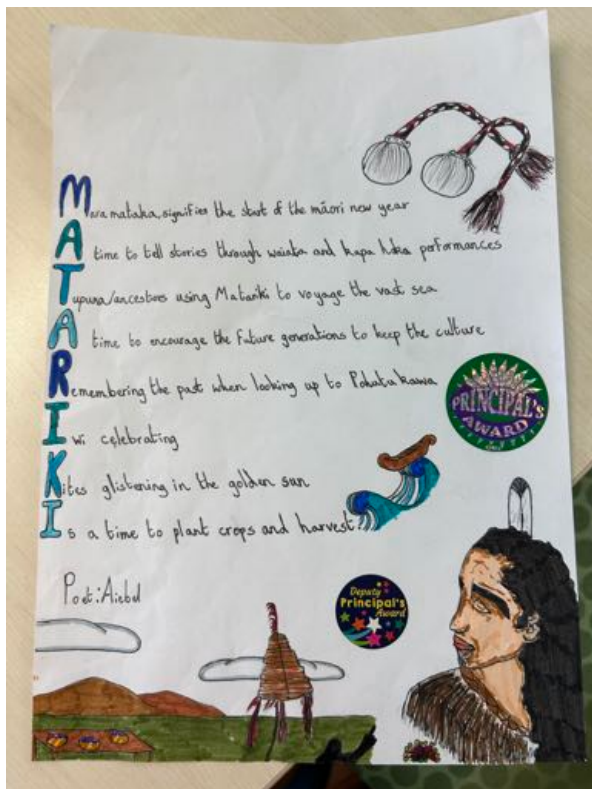 Maramataka, signifies the start of the māori new year
A time to tell stories through waiata and kapa haka performances
Tupuna/ancestors using Matariki to voyage the vast sea
A time to encourage the future generations to keep the culture
Remembering the past when looking up to Pohutukawa
Iwi celebrating
Kites glistening in the golden sun
Is a time to plant crops and harvest.
PRINCIPAL'S
AWARD
Poet:
Deputy
Principal's
Award